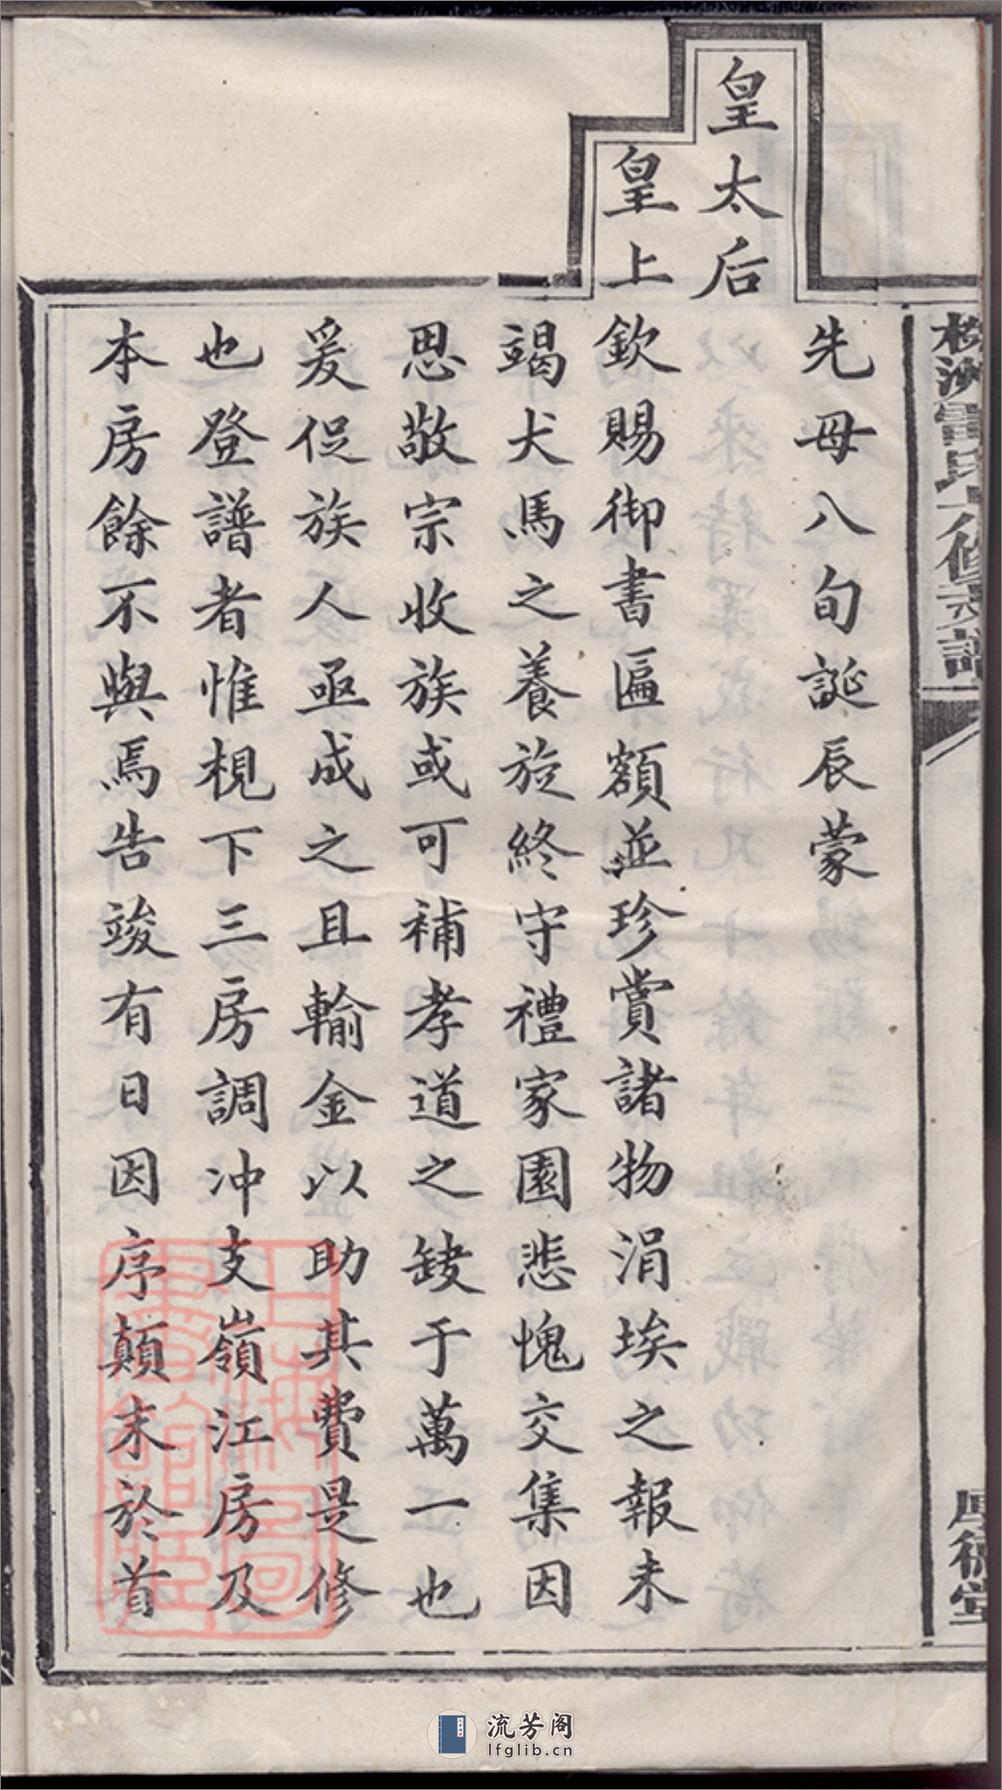 先母八旬誕辰蒙
皇太后
皇上
欽賜御書匾額並珍賞諸物涓埃之報未
竭犬馬之養旋終守禮家園悲愧交集因
思敬宗收族或可補孝道之缺于萬一也
爰促族人亟成之且輸金以助其費是修
也登譜者惟梘下三房調冲支嶺江房及
本房餘不與焉告竣有日因序顛末於首
厚德堂
上海圖書館藏
流芳阁
lfglib.cn